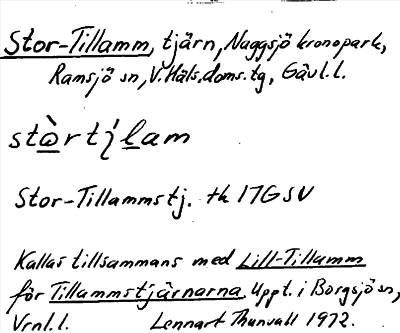 Stor-Tillamm, tjärn, Naggsjö kronopark,
Ramsjö sn, V. Häls. doms. tg, Gävl. l.
stòrtįlam
Stor-Tillammstj. tk 17G SV
Kallas tillsammans med Lill-Tillamm
för Tillammstjärnarna. Uppt. i Borgsjö sn,
Vrnl. l. Lennart Thunvall 1972.